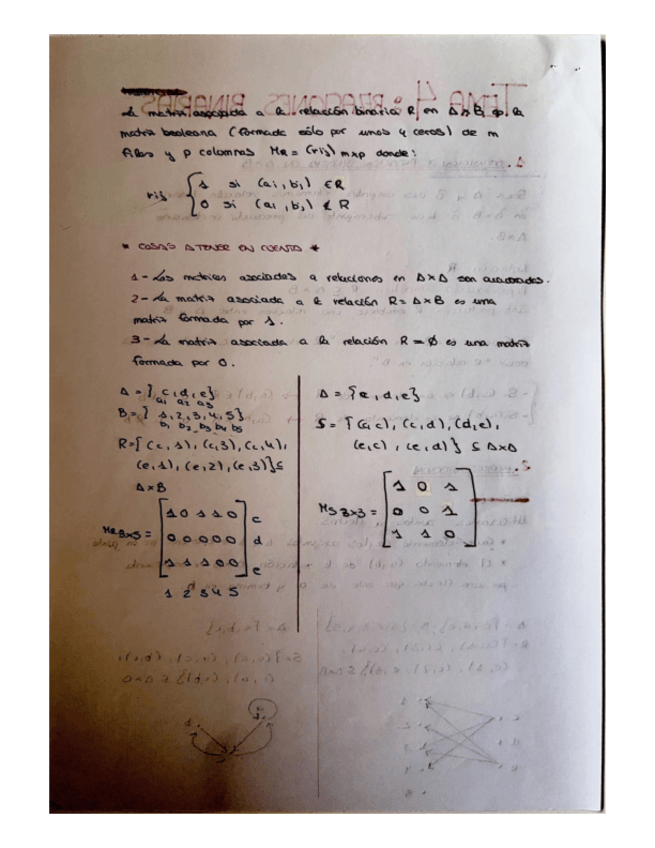 La matriz asociada a la relación binaria R en A×B es la
matriz booleana (formada sólo por unos y ceros) de m
filas y p columnas MR = (rij) m×p donde:
rij { 1 si (ai, bj) ∈ R
0 si (ai, bj) ∉ R
* COSAS A TENER EN CUENTA *
1 - Las matrices asociadas a relaciones en A×A son cuadradas.
2 - La matriz asociada a la relación R = A×B es una
matriz formada por 1.
3 - La matriz asociada a la relación R = ∅ es una matriz
formada por 0.
A = { c, d, e }
a1 a2 a3
B = { 1, 2, 3, 4, 5 }
b1 b2 b3 b4 b5
R = { (c, 1), (c, 3), (c, 4),
(e, 1), (e, 2), (e, 3) } ⊆
A×B
MR 3×5 =
1 0 1 1 0 c
0 0 0 0 0 d
1 1 1 0 0 e
1 2 3 4 5
A = { c, d, e }
S = { (c, c), (c, d), (d, e),
(e, c), (e, d) } ⊆ A×A
MS 3×3 =
1 0 1
0 0 1
1 1 0